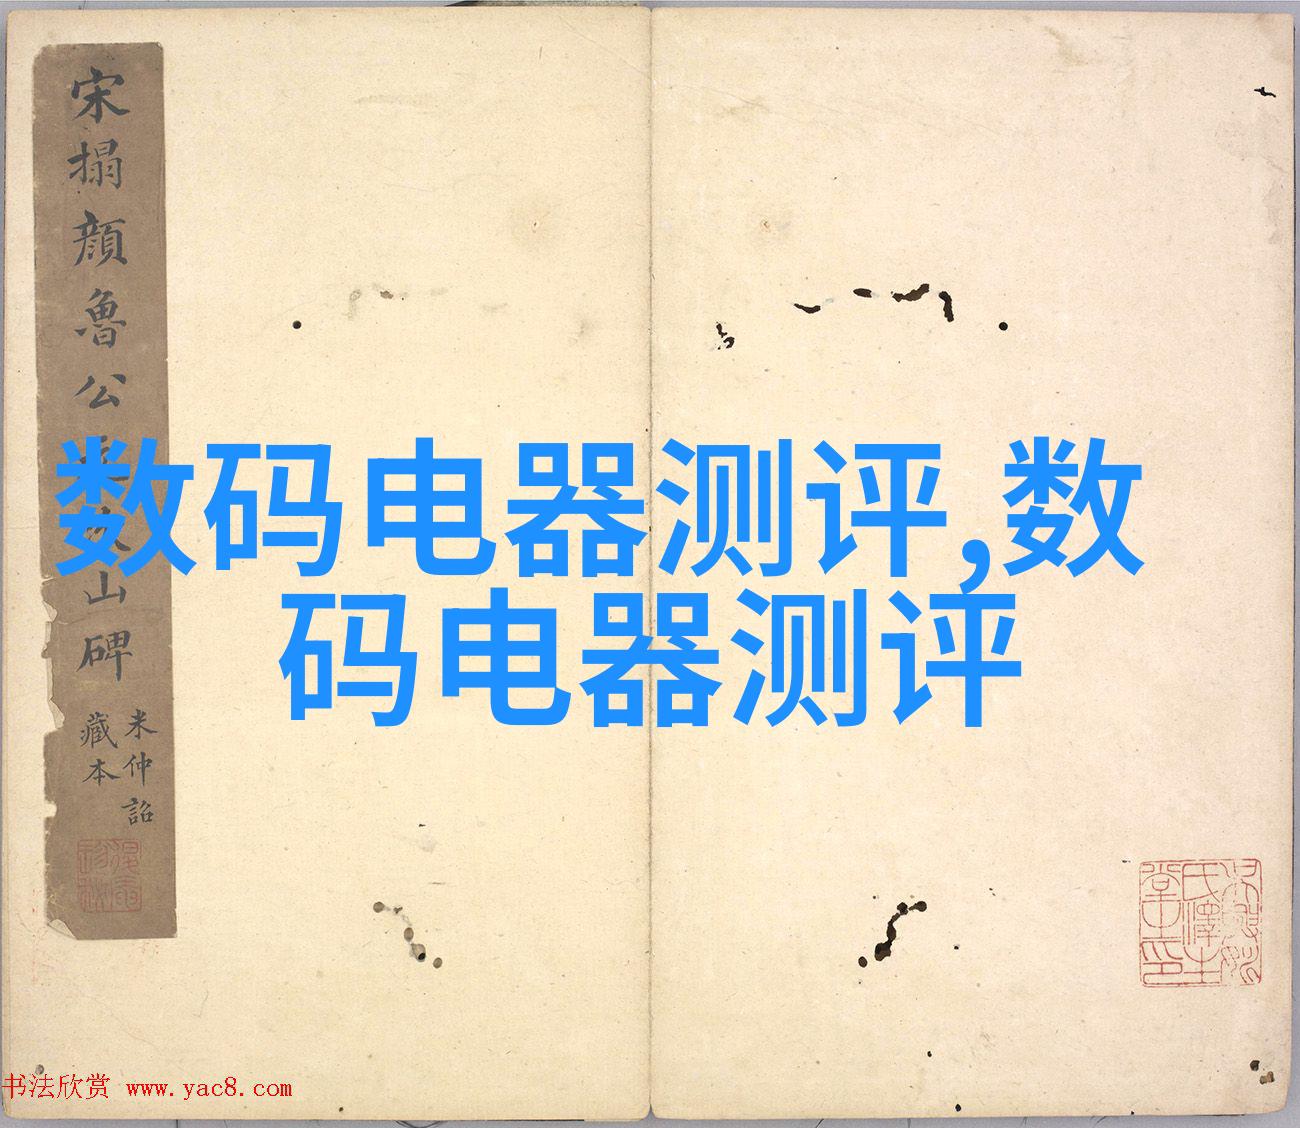 宋搨顔魯公
山碑
米仲詔
藏本
数码电器测评,数
码电器测评
书法欣赏 www.yac8.com